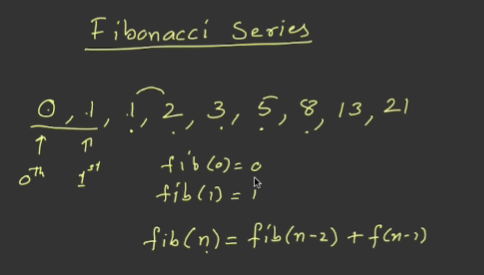 Fibonacci Series
0, 1, 1, 2, 3, 5, 8, 13, 21
0th 1st
fib(0) = 0
fib(1) = 1
fib(n) = fib(n-2) + f(n-1)